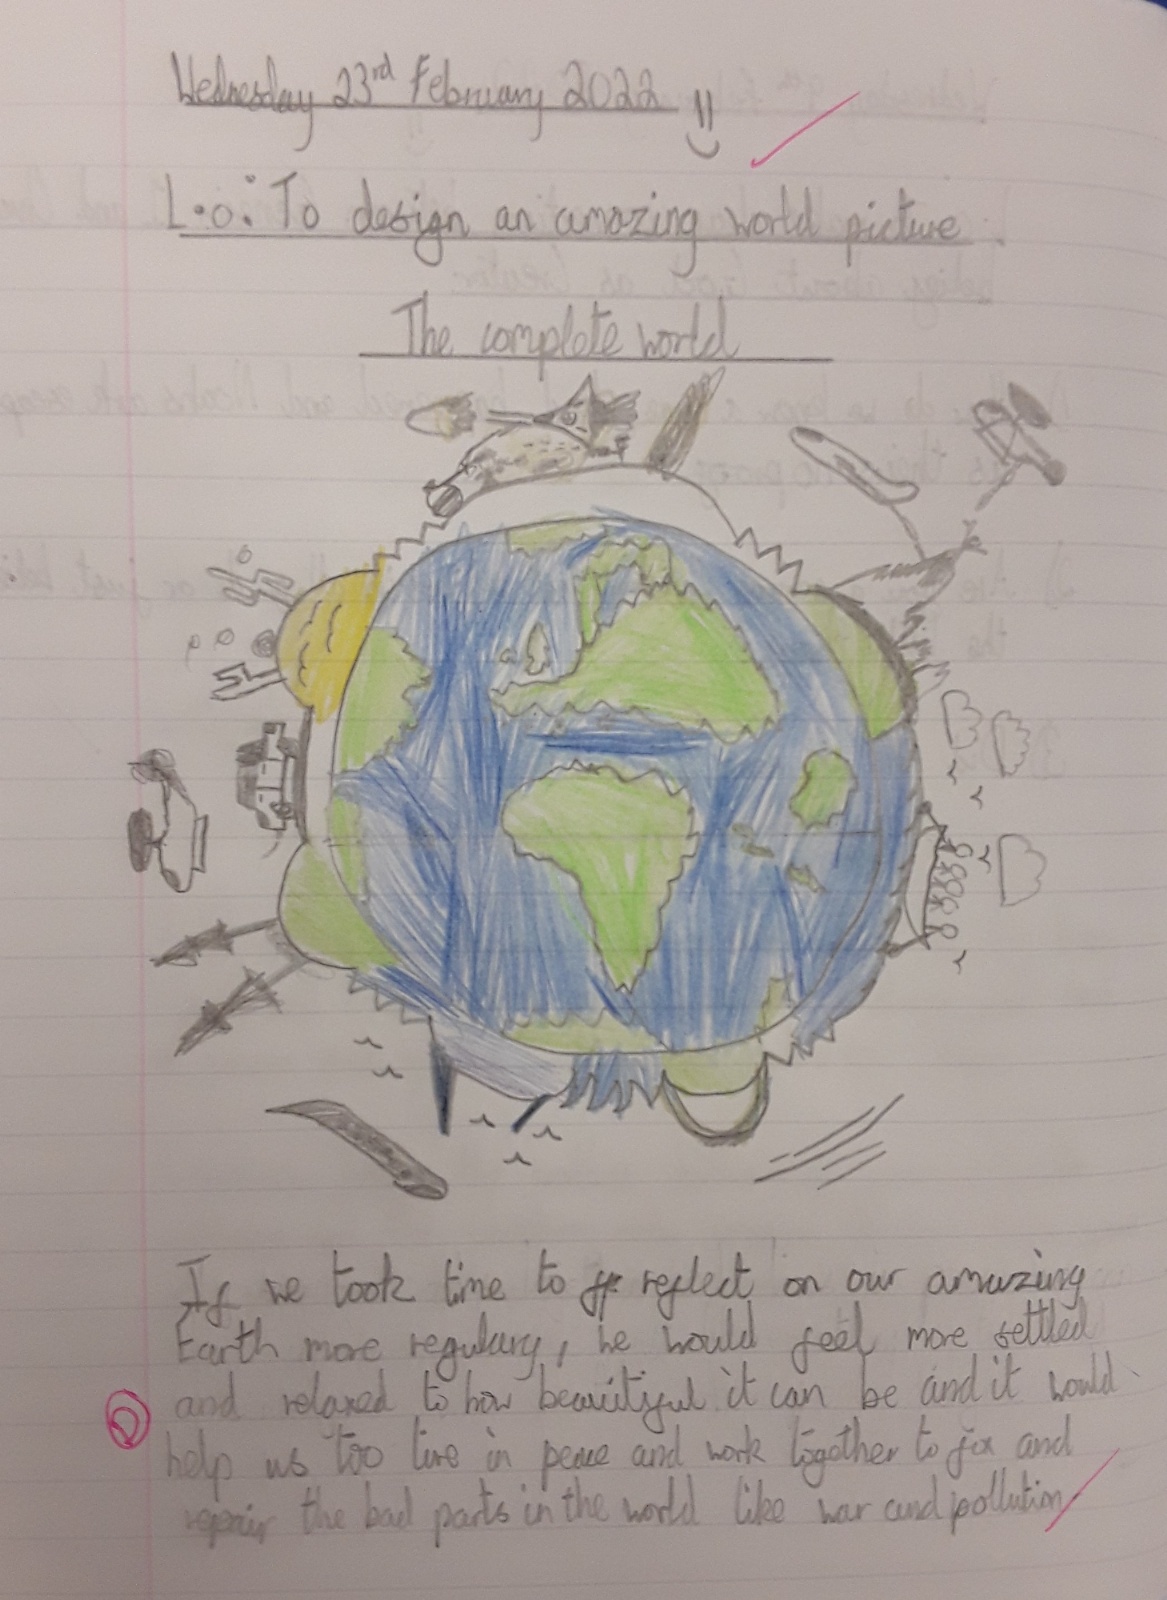 Wednesday 23rd February 2022
L.o: To design an amazing world picture
The complete world
If we took time to reflect on our amazing
Earth more regulary, he would feel more settled
and relaxed to how beautiful it can be and it would
help us too live in peace and work together to fix and
repair the bad parts in the world like war and pollution